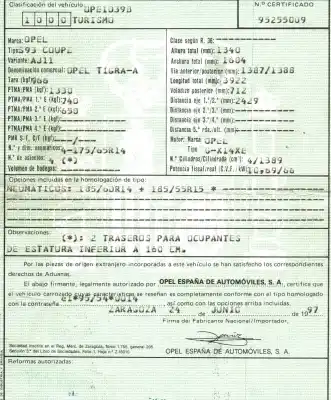 Clasificación del vehículo OPE1039B
N.º CERTIFICADO
1 0 0 0 TURISMO
95255009
Marca: OPEL
Tipo: S93 COUPE
Variante: AJ11
Denominación comercial: OPEL TIGRA-A
Tara (kgf): 966
PTMA/PMA (kgf): 1330
PTMA/PMA 1.º E (kgf): 740
PTMA/PMA 2.º E (kgf): 650
PTMA/PMA 3.º E (kgf):
N.º y dim. neumáticos: 4-175/65R14
N.º de asientos: 4 (*)
Volumen de bodegas:
Clase según R. 36:
Altura total (mm): 1340
Anchura total (mm): 1604
Vía anterior/posterior (mm): 1387/1388
Longitud total (mm): 3922
Voladizo posterior (mm): 712
Distancia eje 1.º/2.º: 2429
Distancia eje 2.º/3.º:
Distancia eje 3.º/4.º:
Distancia 5.ª rda./últ. (mm):
Motor: Marca OPEL
Tipo C-X14XE
N.º Cilindros/Cilindrada (cm³): 4/1389
Potencia fiscal/real (C.V.F. kW): 10,69/66
Opciones incluidas en la homologación de tipo:
NEUMATICOS: 185/60R14 + 185/55R15 *
Observaciones:
(*): 2 TRASEROS PARA OCUPANTES
DE ESTATURA INFERIOR A 160 CM.
Por las piezas de origen extranjero incorporadas a este vehículo se han satisfecho los correspondientes
derechos de Aduanas.
El abajo firmante, legalmente autorizado por OPEL ESPAÑA DE AUTOMÓVILES, S. A. certifica que
el vehículo carrozado cuyas características se reseñan es completamente conforme con el tipo homologado
con la contraseña e1*95/54*0014 así como con las opciones arriba incluidas.
ZARAGOZA 24 de JUNIO de 1997
Firma del Fabricante Nacional/Importador,
OPEL ESPAÑA DE AUTOMÓVILES, S. A.
Reformas autorizadas: